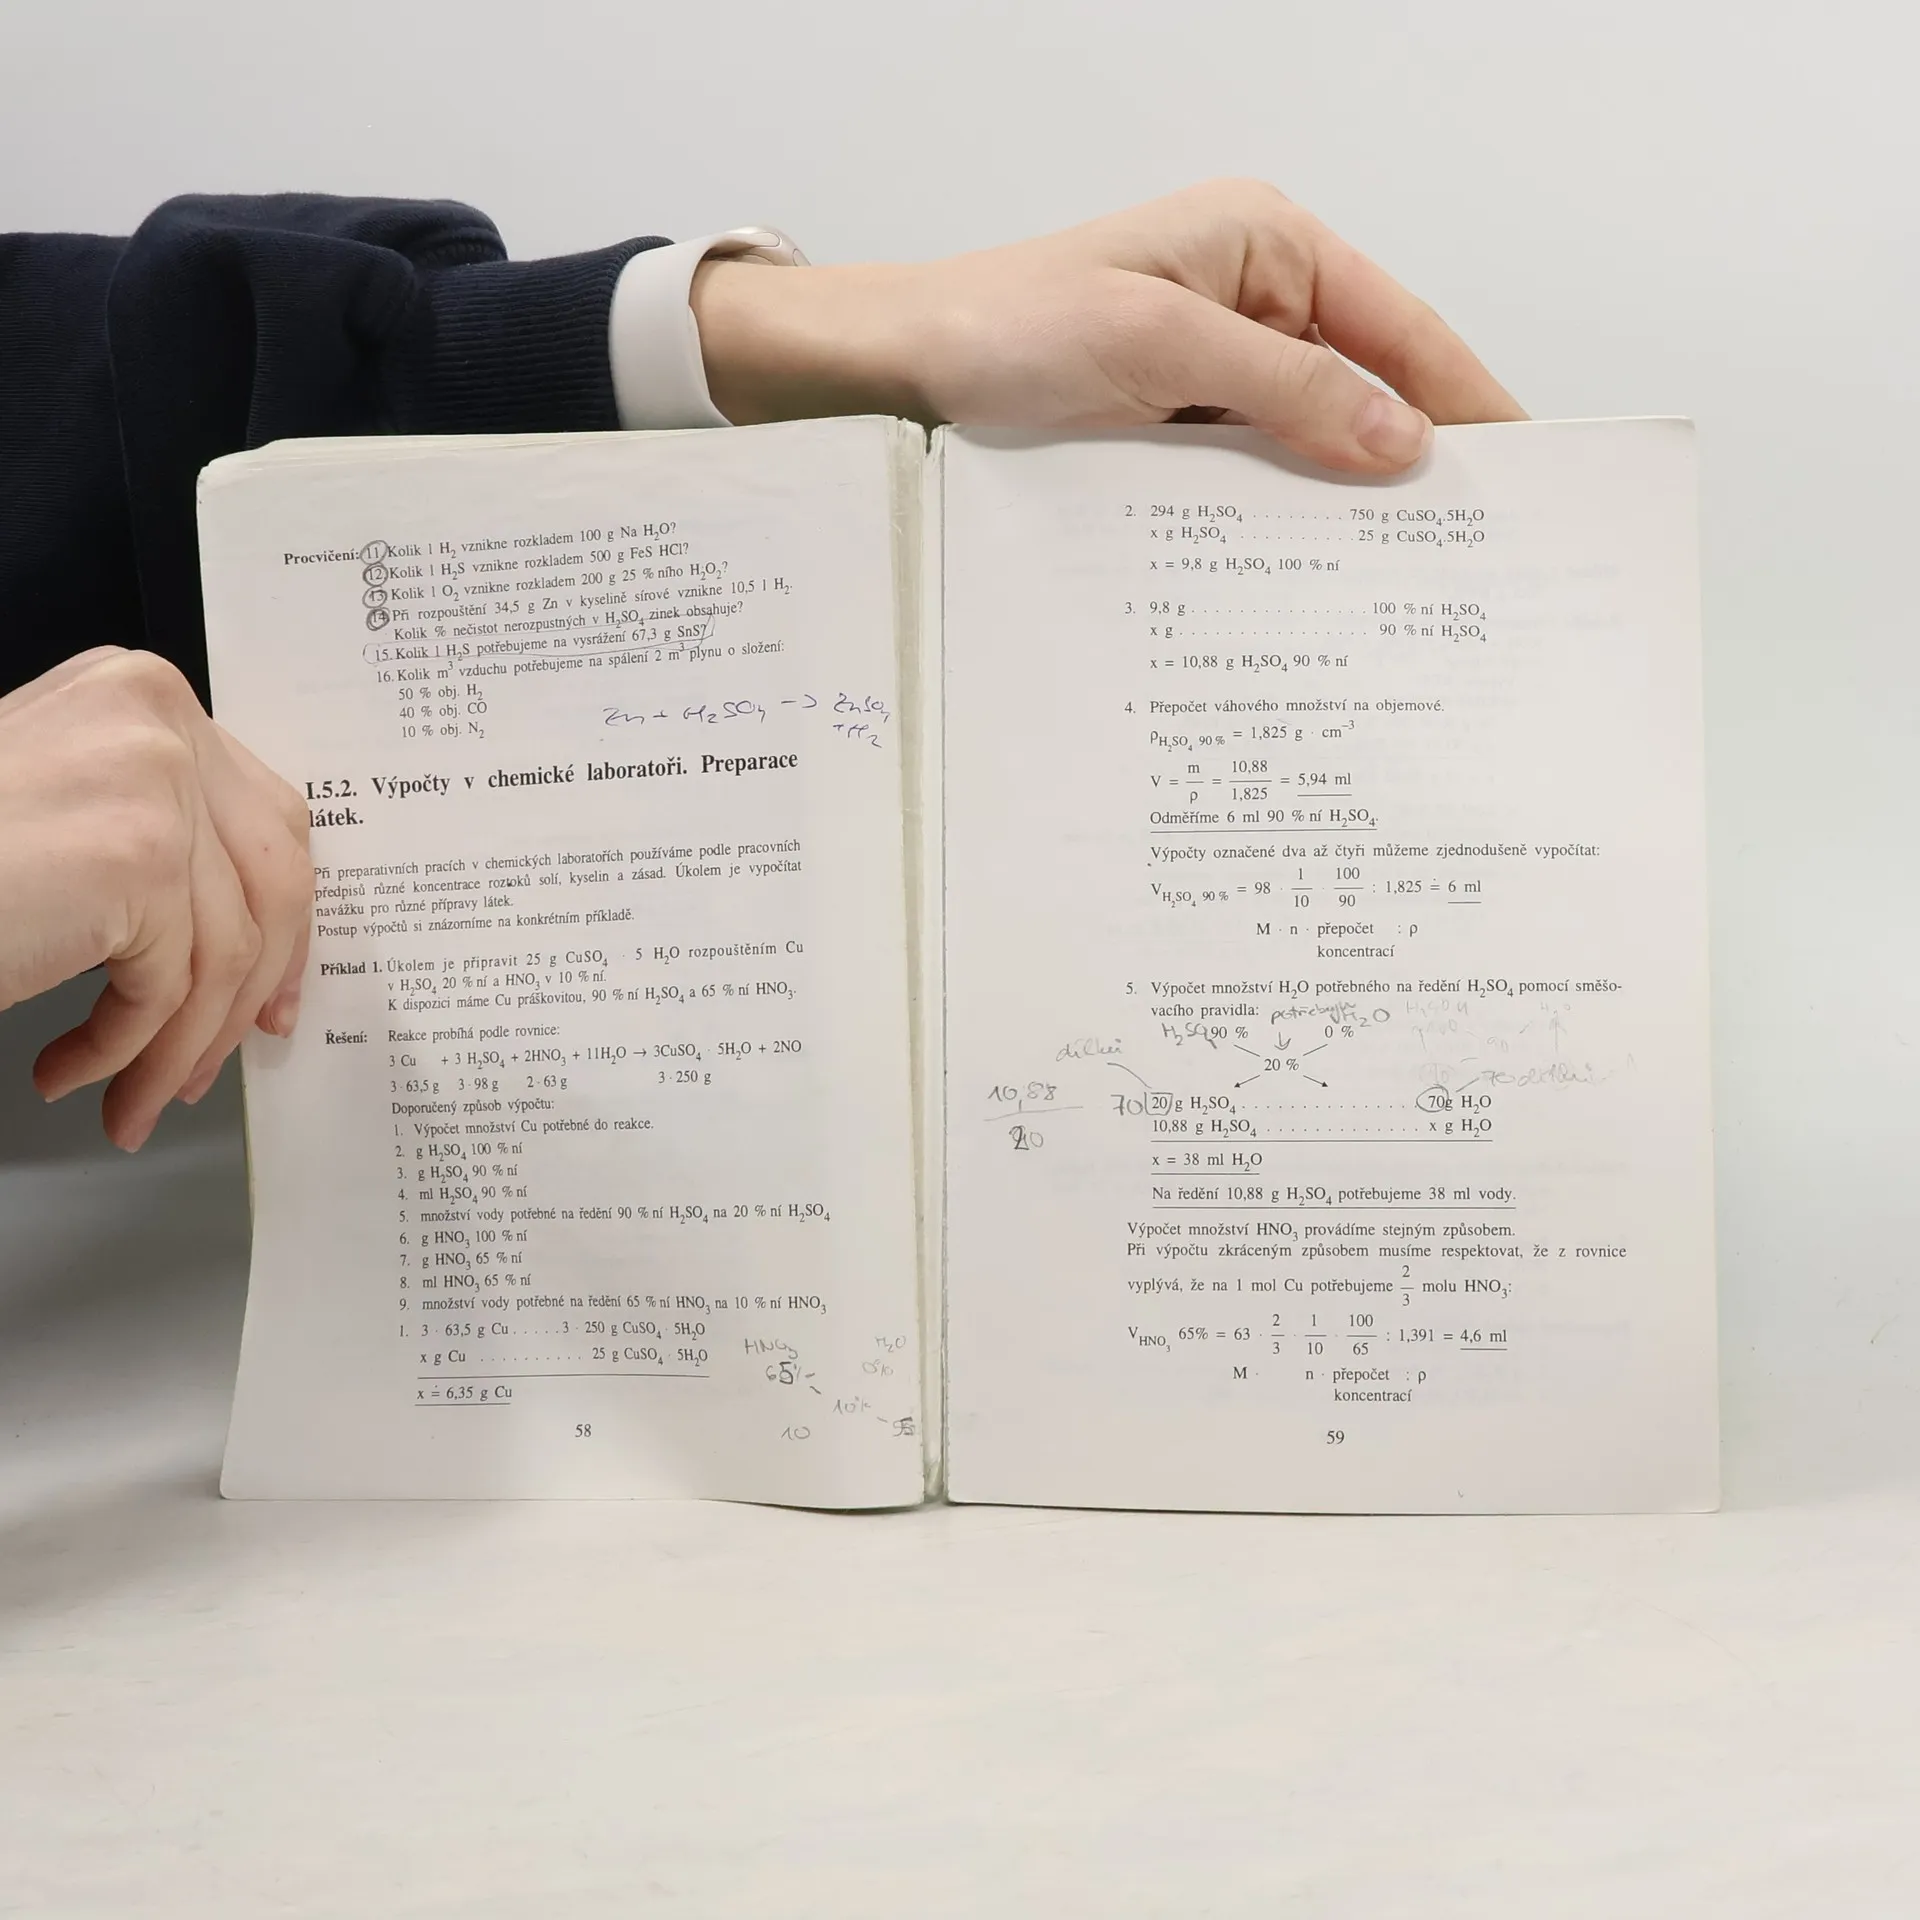 Procvičení: 11. Kolik l H₂ vznikne rozkladem 100 g Na H₂O?
12. Kolik l H₂S vznikne rozkladem 500 g FeS HCl?
13. Kolik l O₂ vznikne rozkladem 200 g 25 % ního H₂O₂?
14. Při rozpouštění 34,5 g Zn v kyselině sírové vznikne 10,5 l H₂.
Kolik % nečistot nerozpustných v H₂SO₄ zinek obsahuje?
15. Kolik l H₂S potřebujeme na vysrážení 67,3 g SnS?
16. Kolik m³ vzduchu potřebujeme na spálení 2 m³ plynu o složení:
50 % obj. H₂
40 % obj. CO
10 % obj. N₂
Zn + H₂SO₄ → ZnSO₄
+H₂
I.5.2. Výpočty v chemické laboratoři. Preparace
látek.
Při preparativních pracích v chemických laboratořích používáme podle pracovních
předpisů různé koncentrace roztoků solí, kyselin a zásad. Úkolem je vypočítat
navážku pro různé přípravy látek.
Postup výpočtů si znázorníme na konkrétním příkladě.
Příklad 1. Úkolem je připravit 25 g CuSO₄ · 5 H₂O rozpouštěním Cu
v H₂SO₄ 20 % ní a HNO₃ v 10 % ní.
K dispozici máme Cu práškovitou, 90 % ní H₂SO₄ a 65 % ní HNO₃.
Řešení: Reakce probíhá podle rovnice:
3 Cu + 3 H₂SO₄ + 2HNO₃ + 11H₂O → 3CuSO₄ · 5H₂O + 2NO
3 · 63,5 g 3 · 98 g 2 · 63 g 3 · 250 g
Doporučený způsob výpočtu:
1. Výpočet množství Cu potřebné do reakce.
2. g H₂SO₄ 100 % ní
3. g H₂SO₄ 90 % ní
4. ml H₂SO₄ 90 % ní
5. množství vody potřebné na ředění 90 % ní H₂SO₄ na 20 % ní H₂SO₄
6. g HNO₃ 100 % ní
7. g HNO₃ 65 % ní
8. ml HNO₃ 65 % ní
9. množství vody potřebné na ředění 65 % ní HNO₃ na 10 % ní HNO₃
1. 3 · 63,5 g Cu . . . . . 3 · 250 g CuSO₄ · 5H₂O
x g Cu . . . . . . . . . . 25 g CuSO₄ · 5H₂O
x ≐ 6,35 g Cu
HNO₃ H₂O
65% 0%
10%
10
58
2. 294 g H₂SO₄ . . . . . . . . 750 g CuSO₄.5H₂O
x g H₂SO₄ . . . . . . . . . . 25 g CuSO₄.5H₂O
x = 9,8 g H₂SO₄ 100 % ní
3. 9,8 g . . . . . . . . . . . . . . . . 100 % ní H₂SO₄
x g . . . . . . . . . . . . . . . . . 90 % ní H₂SO₄
x = 10,88 g H₂SO₄ 90 % ní
4. Přepočet váhového množství na objemové.
ρH₂SO₄ 90 % = 1,825 g · cm⁻³
V = m/ρ = 10,88/1,825 = 5,94 ml
Odměříme 6 ml 90 % ní H₂SO₄.
Výpočty označené dva až čtyři můžeme zjednodušeně vypočítat:
VH₂SO₄ 90 % = 98 · 1/10 · 100/90 : 1,825 ≐ 6 ml
M · n · přepočet : ρ
koncentrací
5. Výpočet množství H₂O potřebného na ředění H₂SO₄ pomocí směšo-
vacího pravidla: H₂O
H₂SO₄ 90 % 0 %
20 %
10,88 70 20 g H₂SO₄ . . . . . . . . . . . . . . . . 70g H₂O
10,88 g H₂SO₄ . . . . . . . . . . . . . x g H₂O
x = 38 ml H₂O
Na ředění 10,88 g H₂SO₄ potřebujeme 38 ml vody.
Výpočet množství HNO₃ provádíme stejným způsobem.
Při výpočtu zkráceným způsobem musíme respektovat, že z rovnice
vyplývá, že na 1 mol Cu potřebujeme 2/3 molu HNO₃:
VHNO₃ 65% = 63 · 2/3 · 1/10 · 100/65 : 1,391 = 4,6 ml
M · n · přepočet : ρ
koncentrací
59